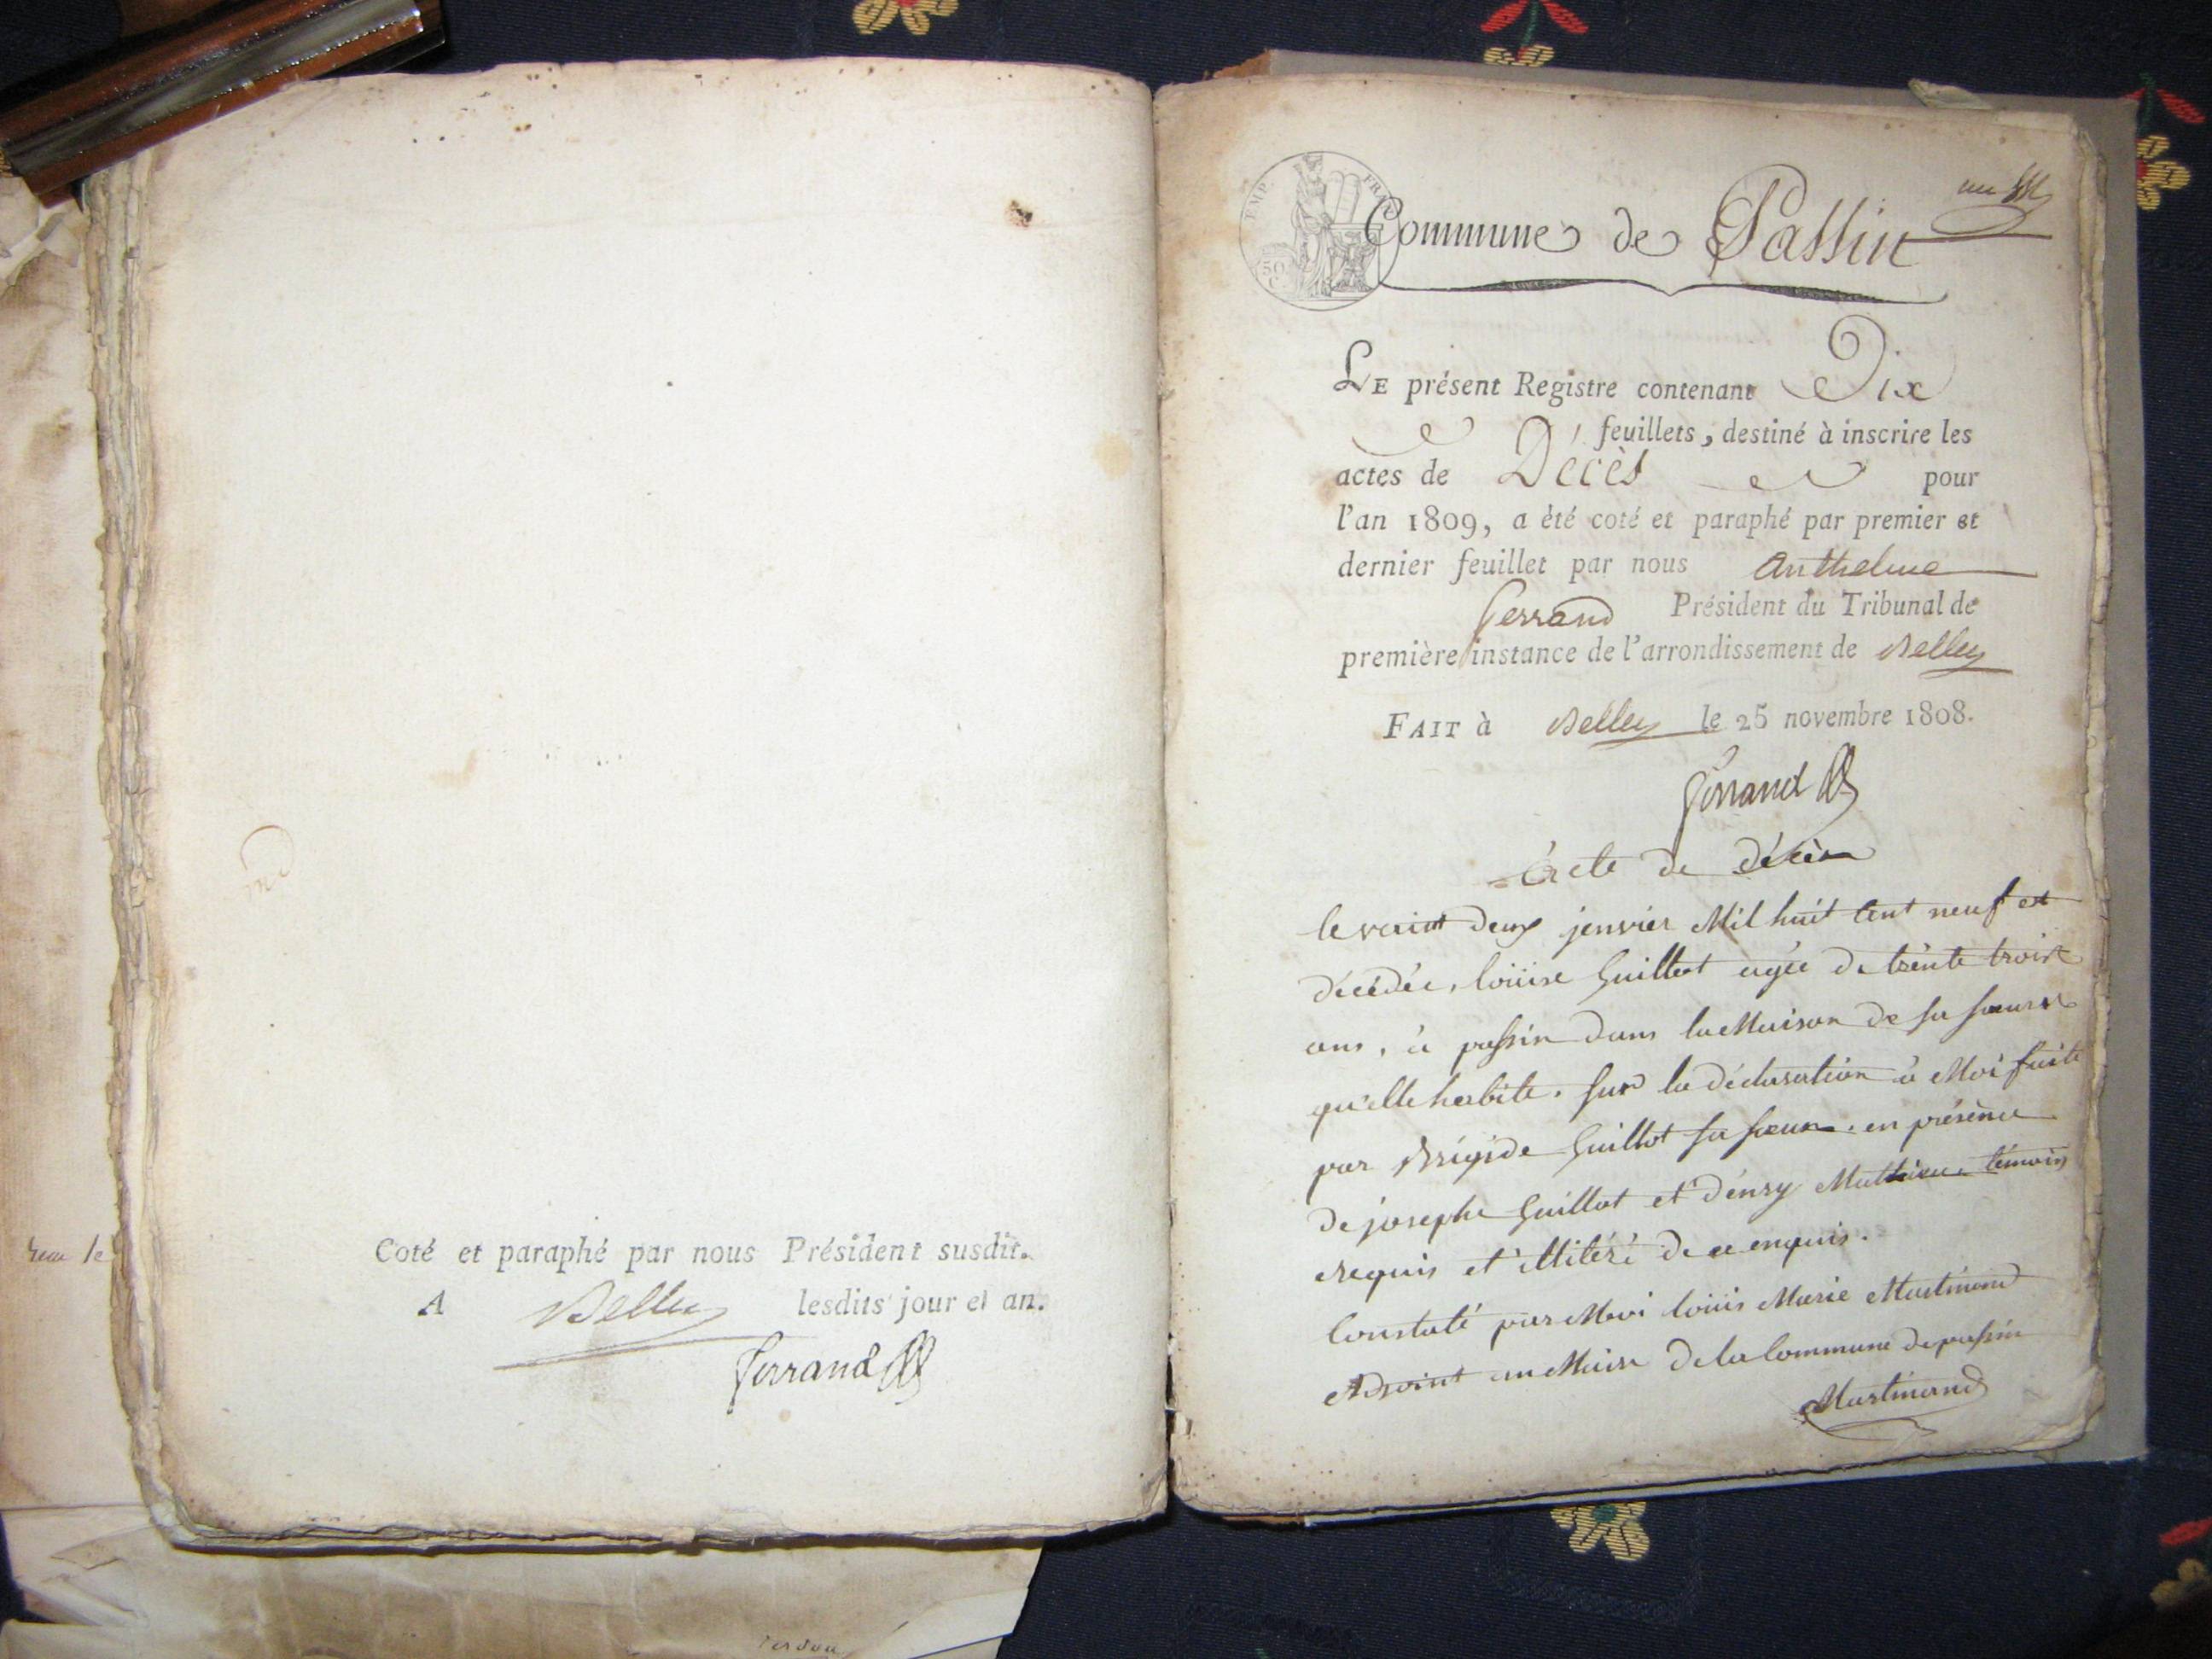 Coté et paraphé par nous Président susdit.
A Belley lesdits jour et an.
Ferrand
EMP. FRAN
50 C.
un
Commune de Passin
LE présent Registre contenant Dix
feuillets, destiné à inscrire les
actes de Décès pour
l'an 1809, a été coté et paraphé par premier et
dernier feuillet par nous Anthelme
Ferrand Président du Tribunal de
première instance de l'arrondissement de Belley
FAIT à Belley le 25 novembre 1808.
Ferrand
Acte de décès
le vaint deux janvier Mil huit cent neuf est
décédée, loüise Guillot agée de trente trois
ans, à passin dans la Maison de sa sœur
qu'elle habite. sur la déclaration à Moi faite
par Brigide Guillot sa sœur. en présence
de josephe Guillot et d'énry Mathieu témoins
requis et illitéré de ce enquis.
Constaté par Moi loüis Marie Martinand
Adjoint au Maire de la Commune de passin
Martinand